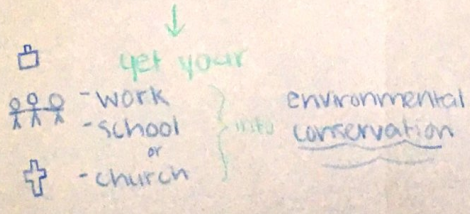 get your
- work
- school
or
- church
into
environmental
conservation